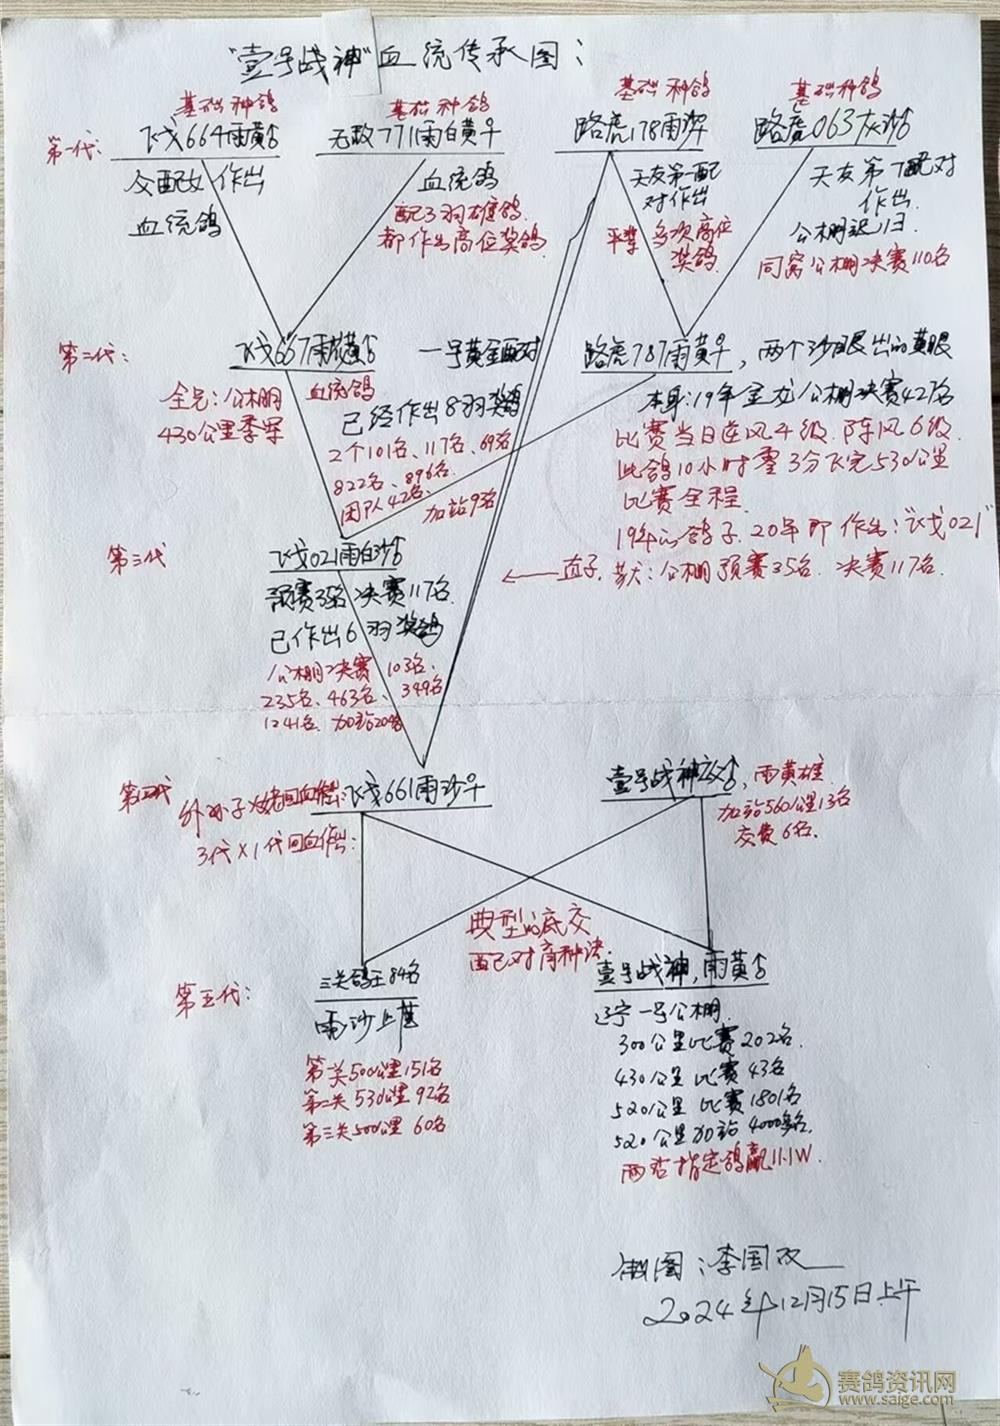 "壹号战神"血统传承图：
基础种鸽
基础种鸽
基础种鸽
基础种鸽
第一代：
飞戈664雨黄♂
无敌771雨白黄♀
路虎178雨沙♀
路虎063灰沙♂
作出
血统鸽
血统鸽
配3羽雄鸽
都作出高位奖鸽
天友第一配
对作出
多次高位
奖鸽
天友第一配对
作出
公棚迟归
同窝公棚决赛110名
第二代：
飞戈667雨黄♂
一号黄金配对
路虎787雨黄♀，两个沙眼出的黄眼
全兄：公棚
430公里季军
血统鸽
已经作出8羽奖鸽
2个101名、117名、69名
822名、896名、
团队42名、
加站9名
本身：19年金龙公棚决赛427名
比赛当日逆风4级.阵风6级.
此鸽10小时零3分飞完530公里
比赛全程
19年的鸽子.20年即作出："飞戈021"
第三代
飞戈021雨白沙♂
预赛35名 决赛117名
已作出6羽奖鸽
公棚决赛103名、
235名、463名、349名
1241名、加站20名
直子.公棚预赛35名.决赛117名.
第四代
外孙子×姥姥回血
3代×1代回血作出：
飞戈661雨沙♀
壹号战神父♂，雨黄雄
加站560公里13名
交费6名.
典型的底交
配对育种法
第五代：
三关鸽王84名
雨沙
第一关500公里151名
第二关530公里92名
第三关500公里60名
壹号战神，雨黄♂
辽宁一号公棚
300公里比赛202名.
430公里比赛43名
520公里比赛1801名
520公里加站4000多名.
两次指定鸽赢11.1W.
制图：李国
2024年12月15日上午
赛鸽资讯网
www.saige.com